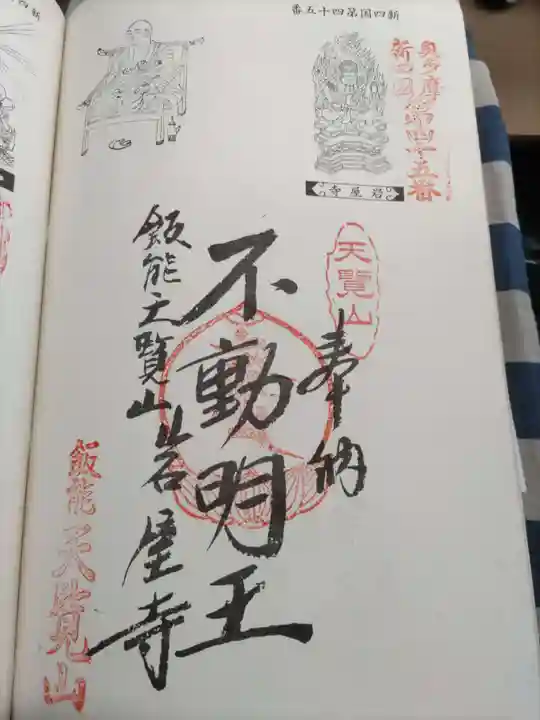 新四国第四十五番
奥多摩
新四国第四十五番
岩屋寺
天覧山
奉納
不動明王
飯能天覧山岩屋寺
飯能天覧山